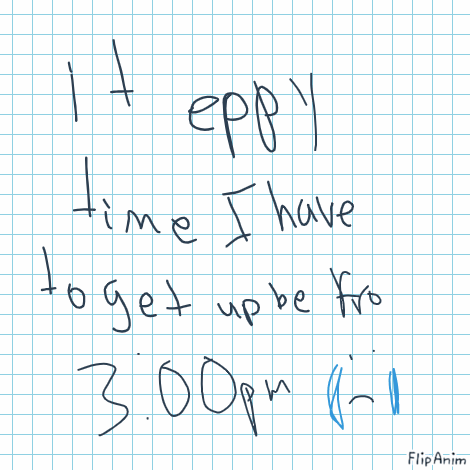 It eppy
time I have
to get up be fro
3.00pm (-_-)
FlipAnim